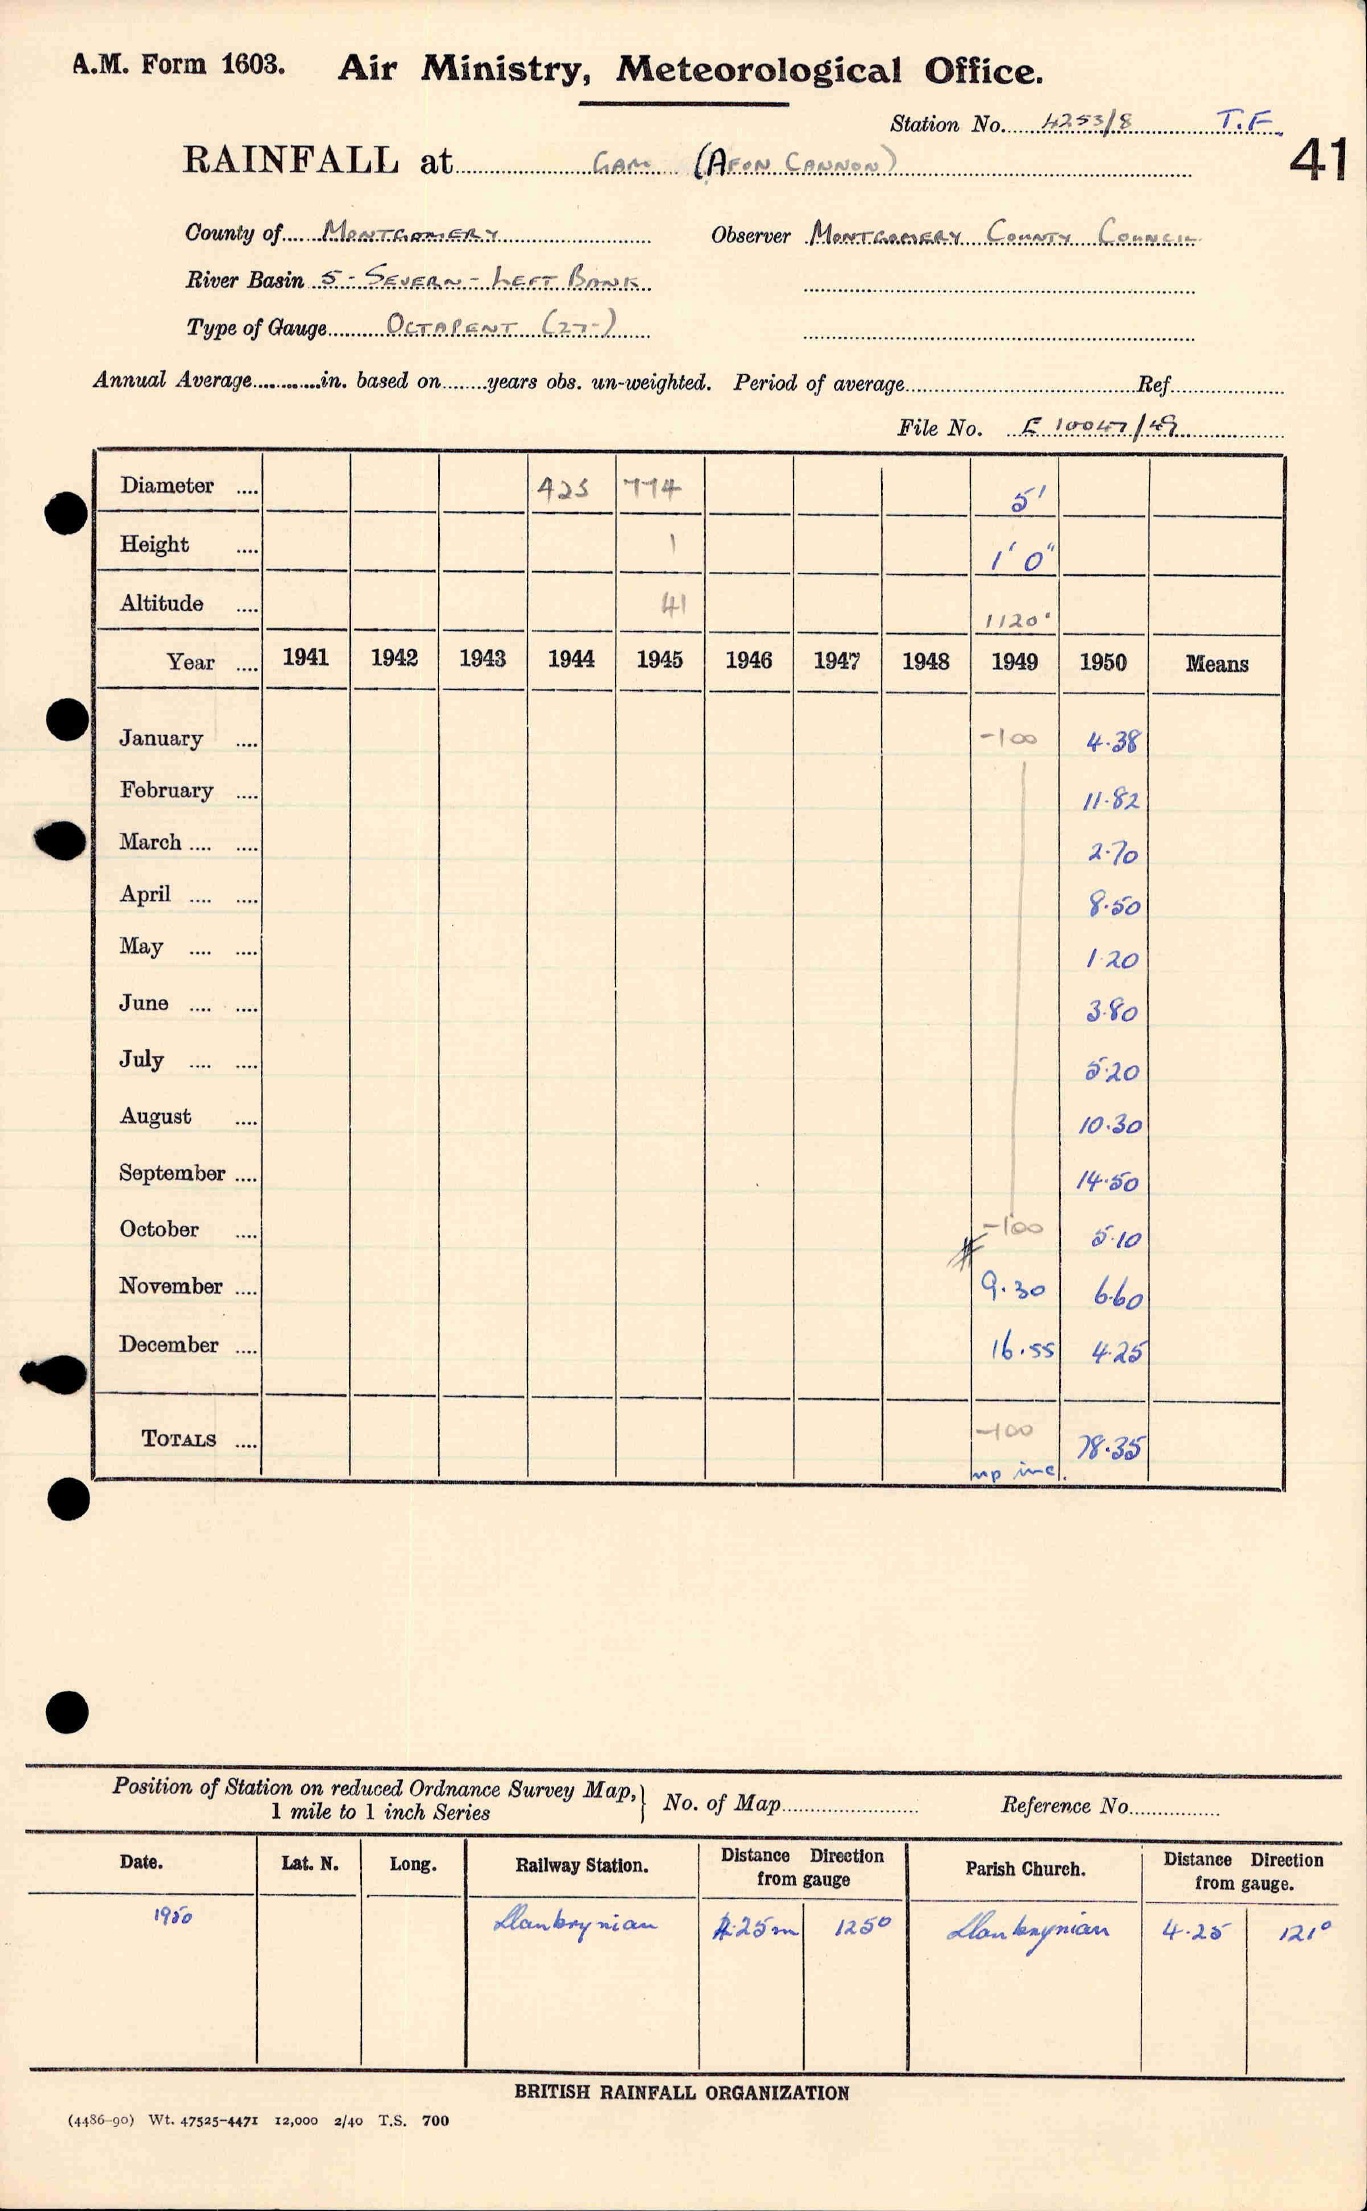 A.M. Form 1603. Air Ministry, Meteorological Office.
Station No. 4253/8 T.F.
RAINFALL at GAM (AFON CANNON) 41
County of MONTGOMERY Observer MONTGOMERY COUNTY COUNCIL
River Basin 5 - SEVERN - LEFT BANK
Type of Gauge OCTAPENT (27-)
Annual Average in. based on years obs. un-weighted. Period of average Ref
File No. E 10047/49
Diameter 425 774 5'
Height 1 1' 0"
Altitude 41 1120'
Year 1941 1942 1943 1944 1945 1946 1947 1948 1949 1950 Means
January -100 4.38
February 11.82
March 2.70
April 8.50
May 1.20
June 3.80
July 5.20
August 10.30
September 14.50
October -100 5.10
November 9.30 6.60
December 16.55 4.25
TOTALS -100 78.35
np inc.
Position of Station on reduced Ordnance Survey Map, } No. of Map Reference No.
1 mile to 1 inch Series
Date. Lat. N. Long. Railway Station. Distance Direction from gauge Parish Church. Distance Direction from gauge.
1950 Llanbrynian 4.25m 125° Llanbrynian 4.25 121°
BRITISH RAINFALL ORGANIZATION
(4486-90) Wt. 47525-4471 12,000 2/40 T.S. 700